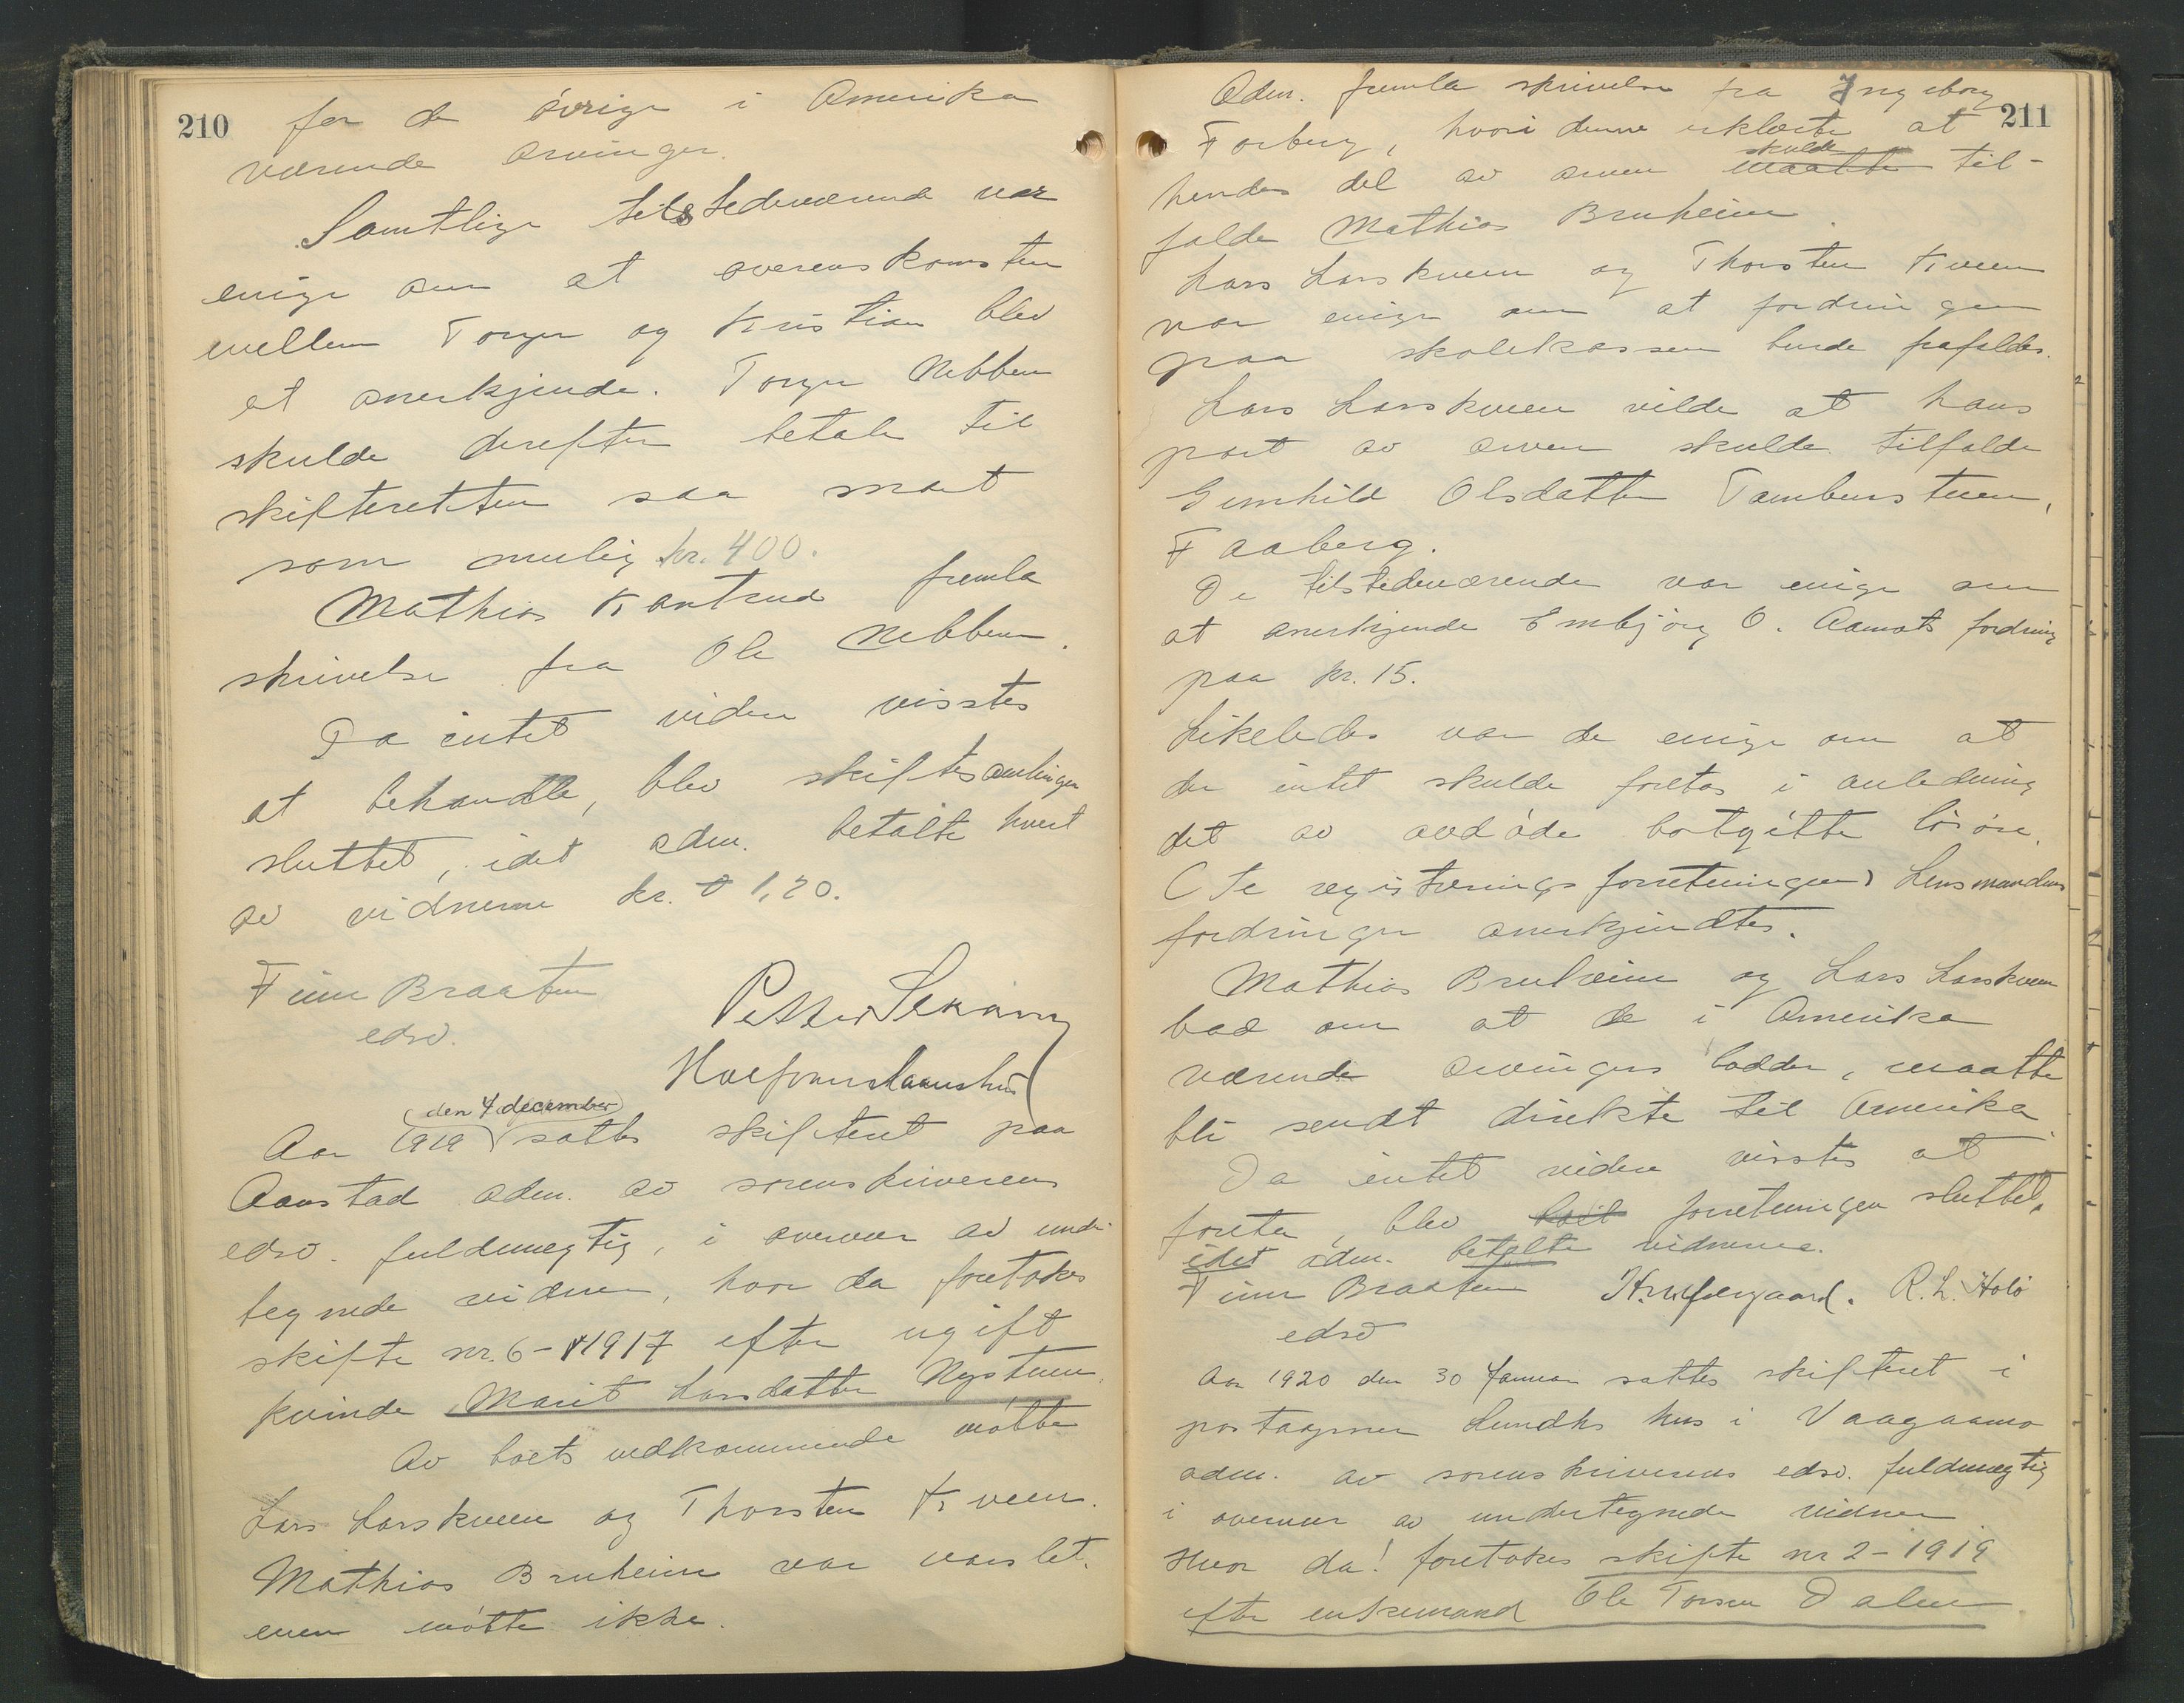 210
for de övrige i Amerika
værende arvinger.
Samtlige tilstedeværende var
enige om at overenskomsten
mellem Torger og Kristian blev
at anerkjende. Torger Nebben
skulde derefter betale til
skifteretten saa snart
som mulig kr. 400.
Mathias Kantrud fremla
skrivelse fra Ole Nebben.
Da intet videre visstes
at behandle, blev skiftesamlingen
sluttet, idet adm. betalte hvert
av vidnerne kr. 1,20.
Finn Braaten
edsv.
(den 4 december)
Aar 1919 sattes skifteret paa
Aanstad adm. av sorenskriverens
edsv. fuldmegtig, i overvær av under-
tegnede vidner, hvor da foretokes
skifte nr. 6 - 1917 efter ugift
kvinde Marit Larsdatter Nystuen.
Av boets vedkommende mötte
Lars Larskveen og Thorsten Kveen.
Mathias Bruheim var varslet.
men mötte ikke.
211
Adm. fremla skrivelse fra Ingeborg
Forberg, hvori denne erklærte at
skulde
hendes del av arven maatte til-
falde Mathias Bruheim.
Lars Larskveen og Thorsten Kveen
var enige om at fordringen
paa skolekassen burde frafaldes.
Lars Larskveen vilde at hans
part av arven skulde tilfalde
Gunhild Olsdatter Tamburstuen,
Faaberg.
De tilstedeværende var enige om
at anerkjende Embjörg O. Aamots fordring
paa kr. 15.
Likeledes var de enige om at
der intet skulde foretas i anledning
det av avdöde bortgitte lösöre.
(Se registreringsforretningen) Lensmandens
fordringer anerkjendtes.
Mathias Bruheim og Lars Larskveen
bad om at de i Amerika
værende arvingers lodder, maatte
bli sendt direkte til Amerika.
Da intet videre visstes at
foreta, blev forretningen sluttet,
idet adm. betalte vidnerne.
Finn Braaten R. L. Holö
edsv
Aar 1920 den 30 Januar sattes skifteret i
postaapner Lundhs hus i Vaagaamo
adm. av sorenskriverens edsv. fuldmegtig
i overvær av undertegnede vidner
Hvor da! foretokes skifte nr 2 - 1919
efter enkemand Ole Torsen Dalen